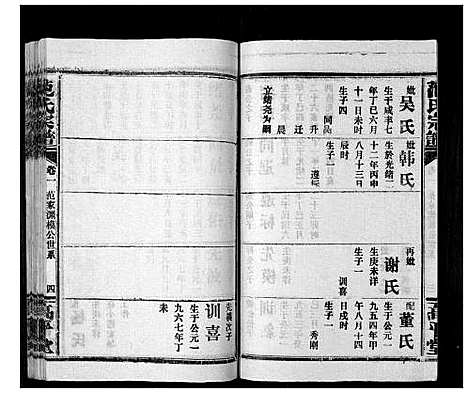 范氏宗譜
妣
吴氏
生于咸丰七
年丁巳六月
十一日未时
生子四
同昌
升
迁
晨
立绪尧为嗣
妣
韩氏
生於光绪二
十二年丙申
八月十三日
辰时
生子一
再妣
谢氏
生庚未详
生子一
训喜
配
董氏
生于公元一
九五四年甲
午八月十四
日戌时
生子一
秀刚
高平堂
范氏宗譜
卷一
范家源模公世系
四
高平堂
先模次子
训喜
生于公元一
九六七年丁
未